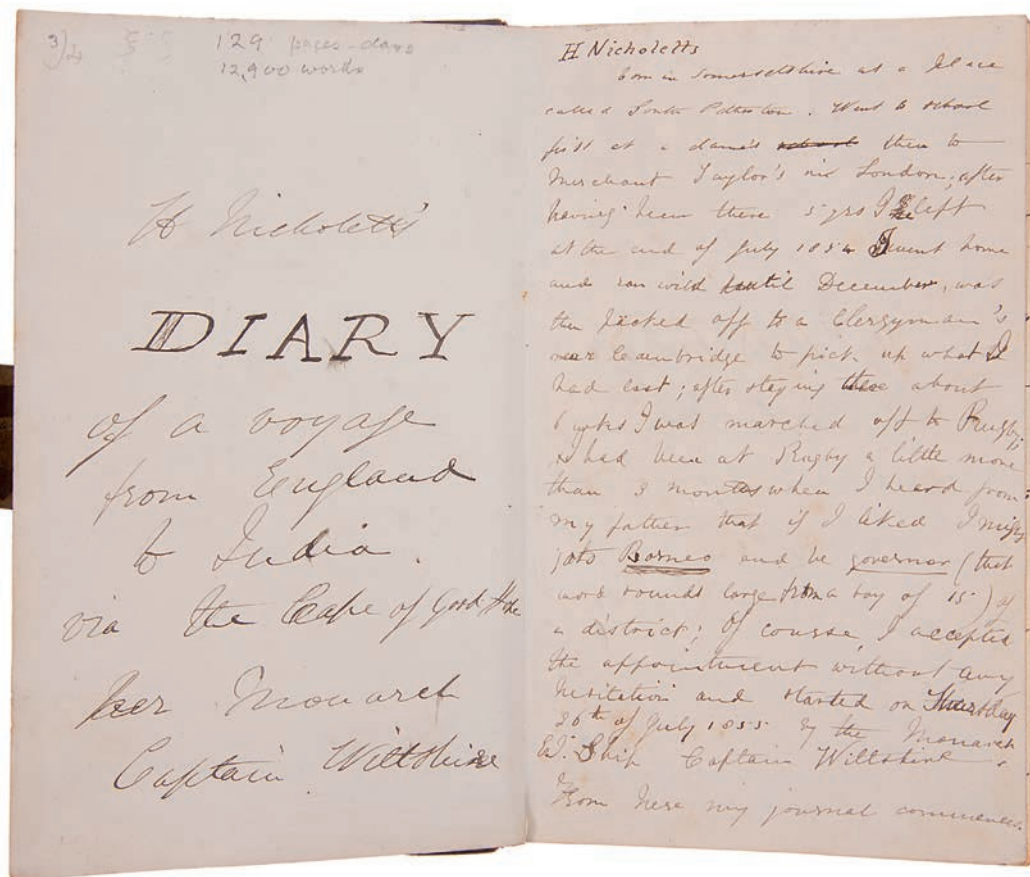 3/2
129 pages - days
12,900 words
H Nicholetts'
DIARY
of a voyage
from England
to India.
via the Cape of Good Hope
per Monarch
Captain Wiltshire
H Nicholetts
born in Somersetshire at a place
called South Petherton. Went to school
first at a dame's school then to
Merchant Taylor's in London; after
having been there 5 yrs I left
at the end of July 1854 I went home
and ran wild until December, was
then packed off to a Clergyman's
near Cambridge to pick up what I
had lost; after staying there about
6 weeks I was marched off to Rugby;
I had been at Rugby a little more
than 3 months when I heard from
my father that if I liked I might
go to Borneo and be governor (that
word sounds large from a boy of 15) of
a district; Of course, I accepted
the appointment without any
hesitation and started on Thursday
26th of July 1855 by the Monarch
E.I. Ship Captain Wiltshire.
From here my journal commences.